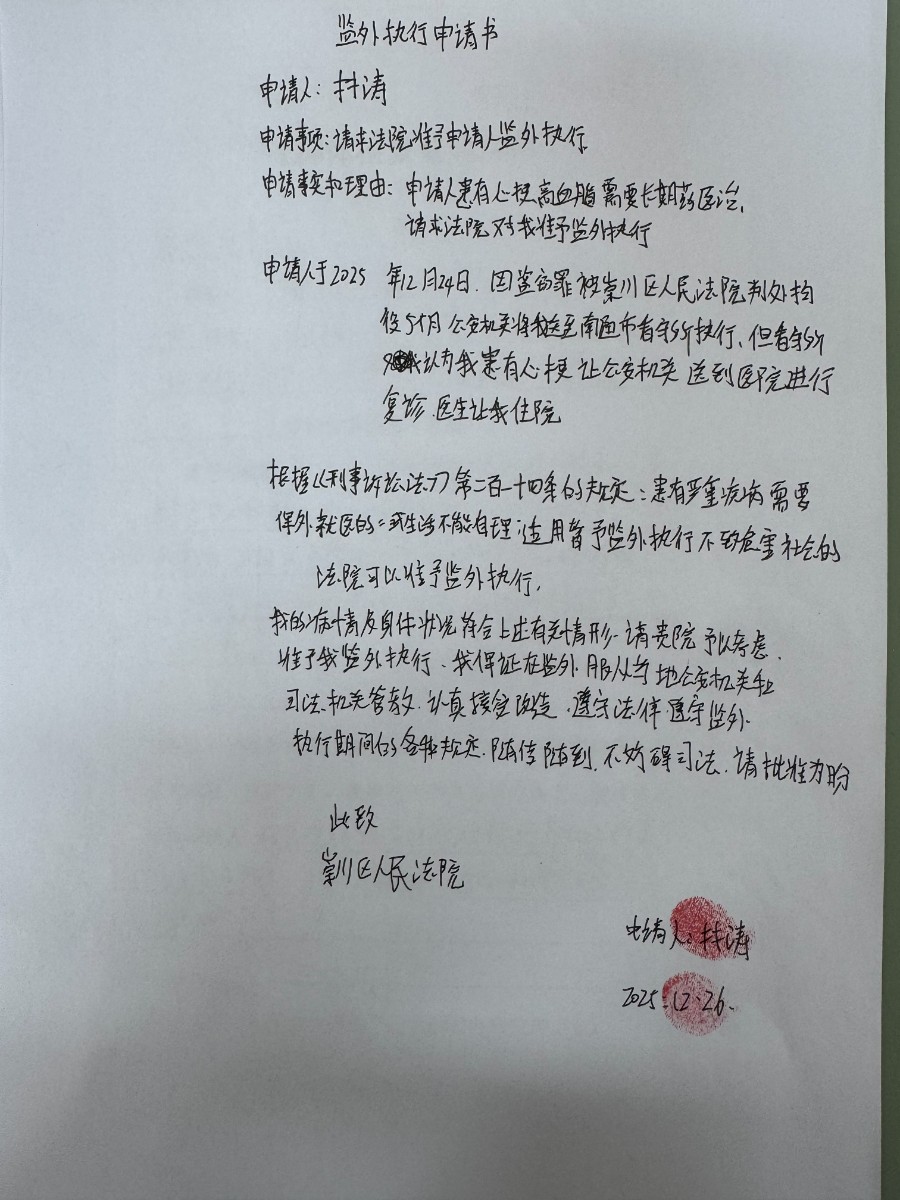 监外执行申请书
申请人：林涛
申请事项：请求法院准予申请人监外执行
申请事实和理由：申请人患有心梗高血脂需要长期药医治，
请求法院对我准予监外执行
申请人于2025 年12月24日．因盗窃罪被崇川区人民法院判处拘
役5个月 公安机关将我送至南通市看守所执行、但看守所
认为我患有心梗 让公安机关 送到医院进行
复诊．医生让我住院
根据《刑事诉讼法》第二百一十四条的规定：患有严重疾病需要
保外就医的：或生活不能自理；适用暂予监外执行不致危害社会的
法院可以准予监外执行，
我的病情及身体状况符合上述有关情形 请贵院予以考虑．
准予我监外执行、我保证在监外服从当地公安机关和
司法机关管教．认真接受改造．遵守法律遵守监外
执行期间的各种规定．随传随到．不妨碍司法．请批准为盼
此致
崇川区人民法院
申请人：林涛
2025.12.26.